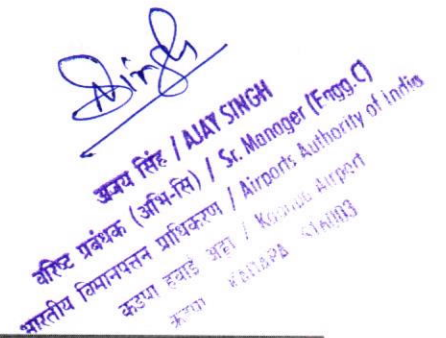 अजय सिंह / AJAY SINGH
वरिष्ट प्रबंधक (अभि-सि) / Sr. Manager (Engg.C)
भारतीय विमानपत्तन प्राधिकरण / Airports Authority of India
कडपा हवाई अड्डा / Kadapa Airport
कडपा KADAPA